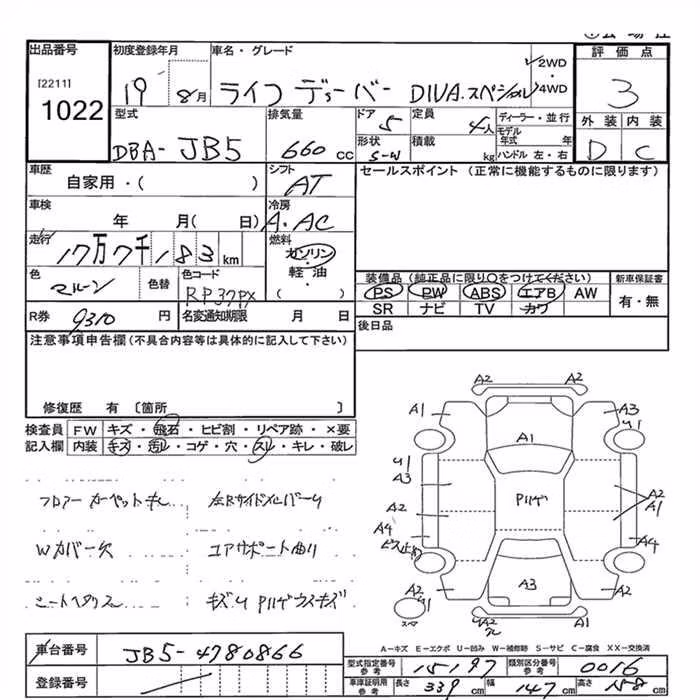 出品番号 初度登録年月 車名・グレード 評価点
[2211] 1022 19 8月 ライフ ディーバー DIVA.スペシャル ✓2WD・4WD 3
外装 内装
D C
型式 排気量 ドア 定員 ディーラー・並行
DBA-JB5 660 CC 5 4人 モデル年式 年
形状 積載 kg ハンドル 左・右
S-W
車歴 シフト セールスポイント (正常に機能するものに限ります)
自家用・( ) AT
車検 冷房
年 月( 日) A.AC
走行 燃料
17万7千183km ガソリン・軽油・( )
色 色替 色コード 装備品(純正品に限り○をつけてください) 新車保証書
マルーン RP37PX PS PW ABS エアB AW 有・無
SR ナビ TV カワ
R券 9310 円 名変通知期限 月 日 後日品
注意事項申告欄(不具合内容等は具体的に記入して下さい)
修復歴 有 〔箇所 〕
検査員 FW キズ・飛石・ヒビ割・リペア跡・×要
記入欄 内装 キズ・汚レ・コゲ・穴・スレ・キレ・破レ
フロアーカーペットキレ 左Rサイドシルバーリ
Wカバー欠 コアサポート曲り
シートヘタリス キズU Pハゲウスキズ
A2 A2
A1 A3
U1 U1
A1
A2 Pハゲ A2
A2 A1
A4 A4
A3
スペア A2 A1
A－キズ E－エクボ U－凹み W－補修跡 S－サビ C－腐食 XX－交換済
車台番号 JB5-4780866
型式指定番号 参考 15197 類別区分番号 参考 0016
登録番号
車庫証明用 参考 長さ 339 cm 幅 147 cm 高さ 158 cm